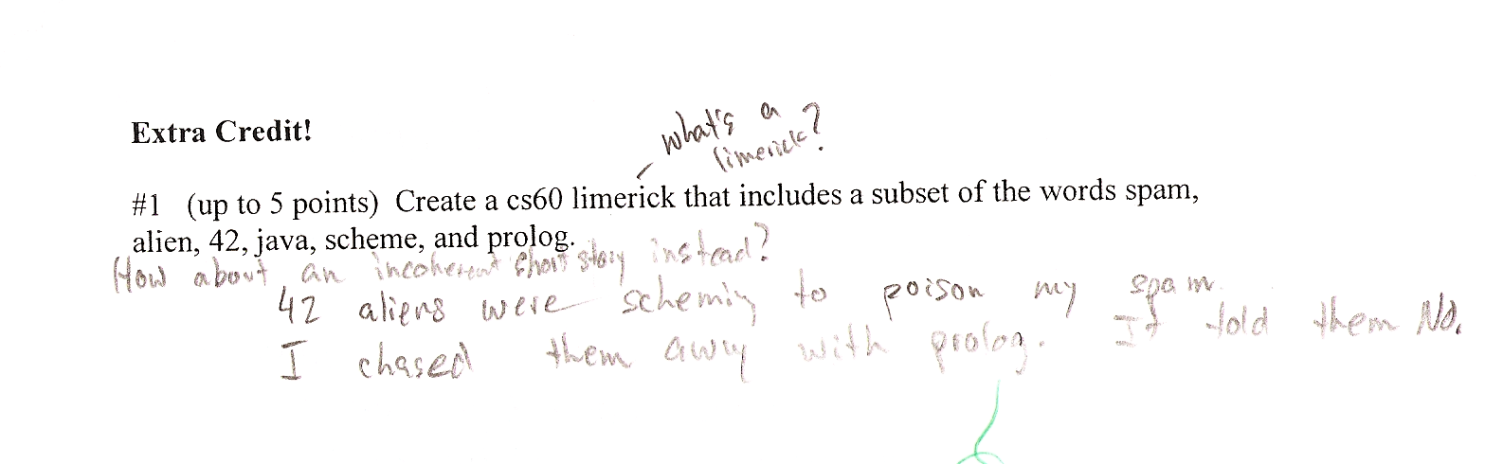 Extra Credit!
what's a
limerick?
#1 (up to 5 points) Create a cs60 limerick that includes a subset of the words spam,
alien, 42, java, scheme, and prolog.
How about an incoherent short story instead?
42 aliens were scheming to poison my spam.
I chased them away with prolog. It told them No.